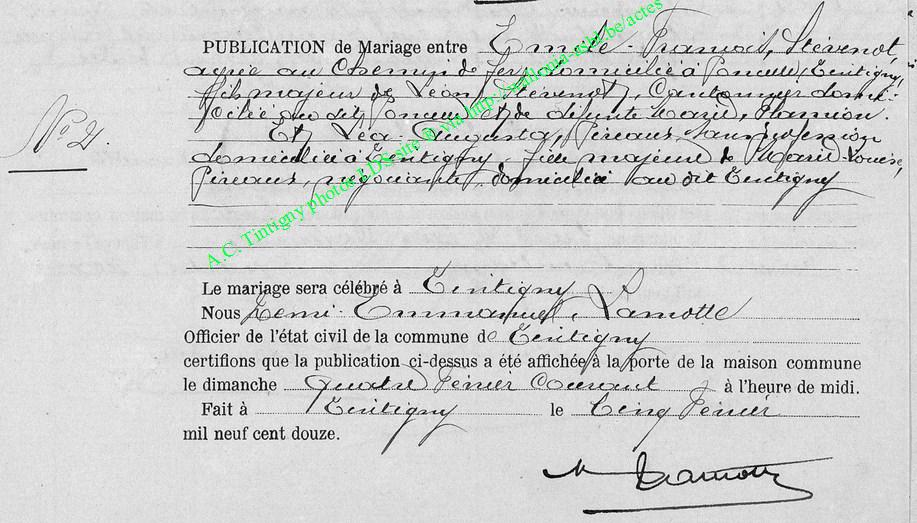 PUBLICATION de Mariage entre Emile François, Stévenot,
agréé au Chemin de fer, domicilié à Poncelle, Tintigny,
fils majeur de Léon, Stévenot, Cantonnier domi-
cilié au dit Poncelle et de défunte Marie,
Et Léa Augusta, Pireaux, sans profession
domiciliée à Tintigny, fille majeure de Marie-Louise,
Pireaux, négociante, domiciliée au dit Tintigny
N° 2.
Le mariage sera célébré à Tintigny
Nous Remi Emmanuel, Lamotte
Officier de l'état civil de la commune de Tintigny
certifions que la publication ci-dessus a été affichée à la porte de la maison commune
le dimanche quatre Février Courant à l'heure de midi.
Fait à Tintigny le Cinq Février
mil neuf cent douze.
Lamotte
A.C. Tintigny photos LDS site © via http://wallonia-asbl.be/actes